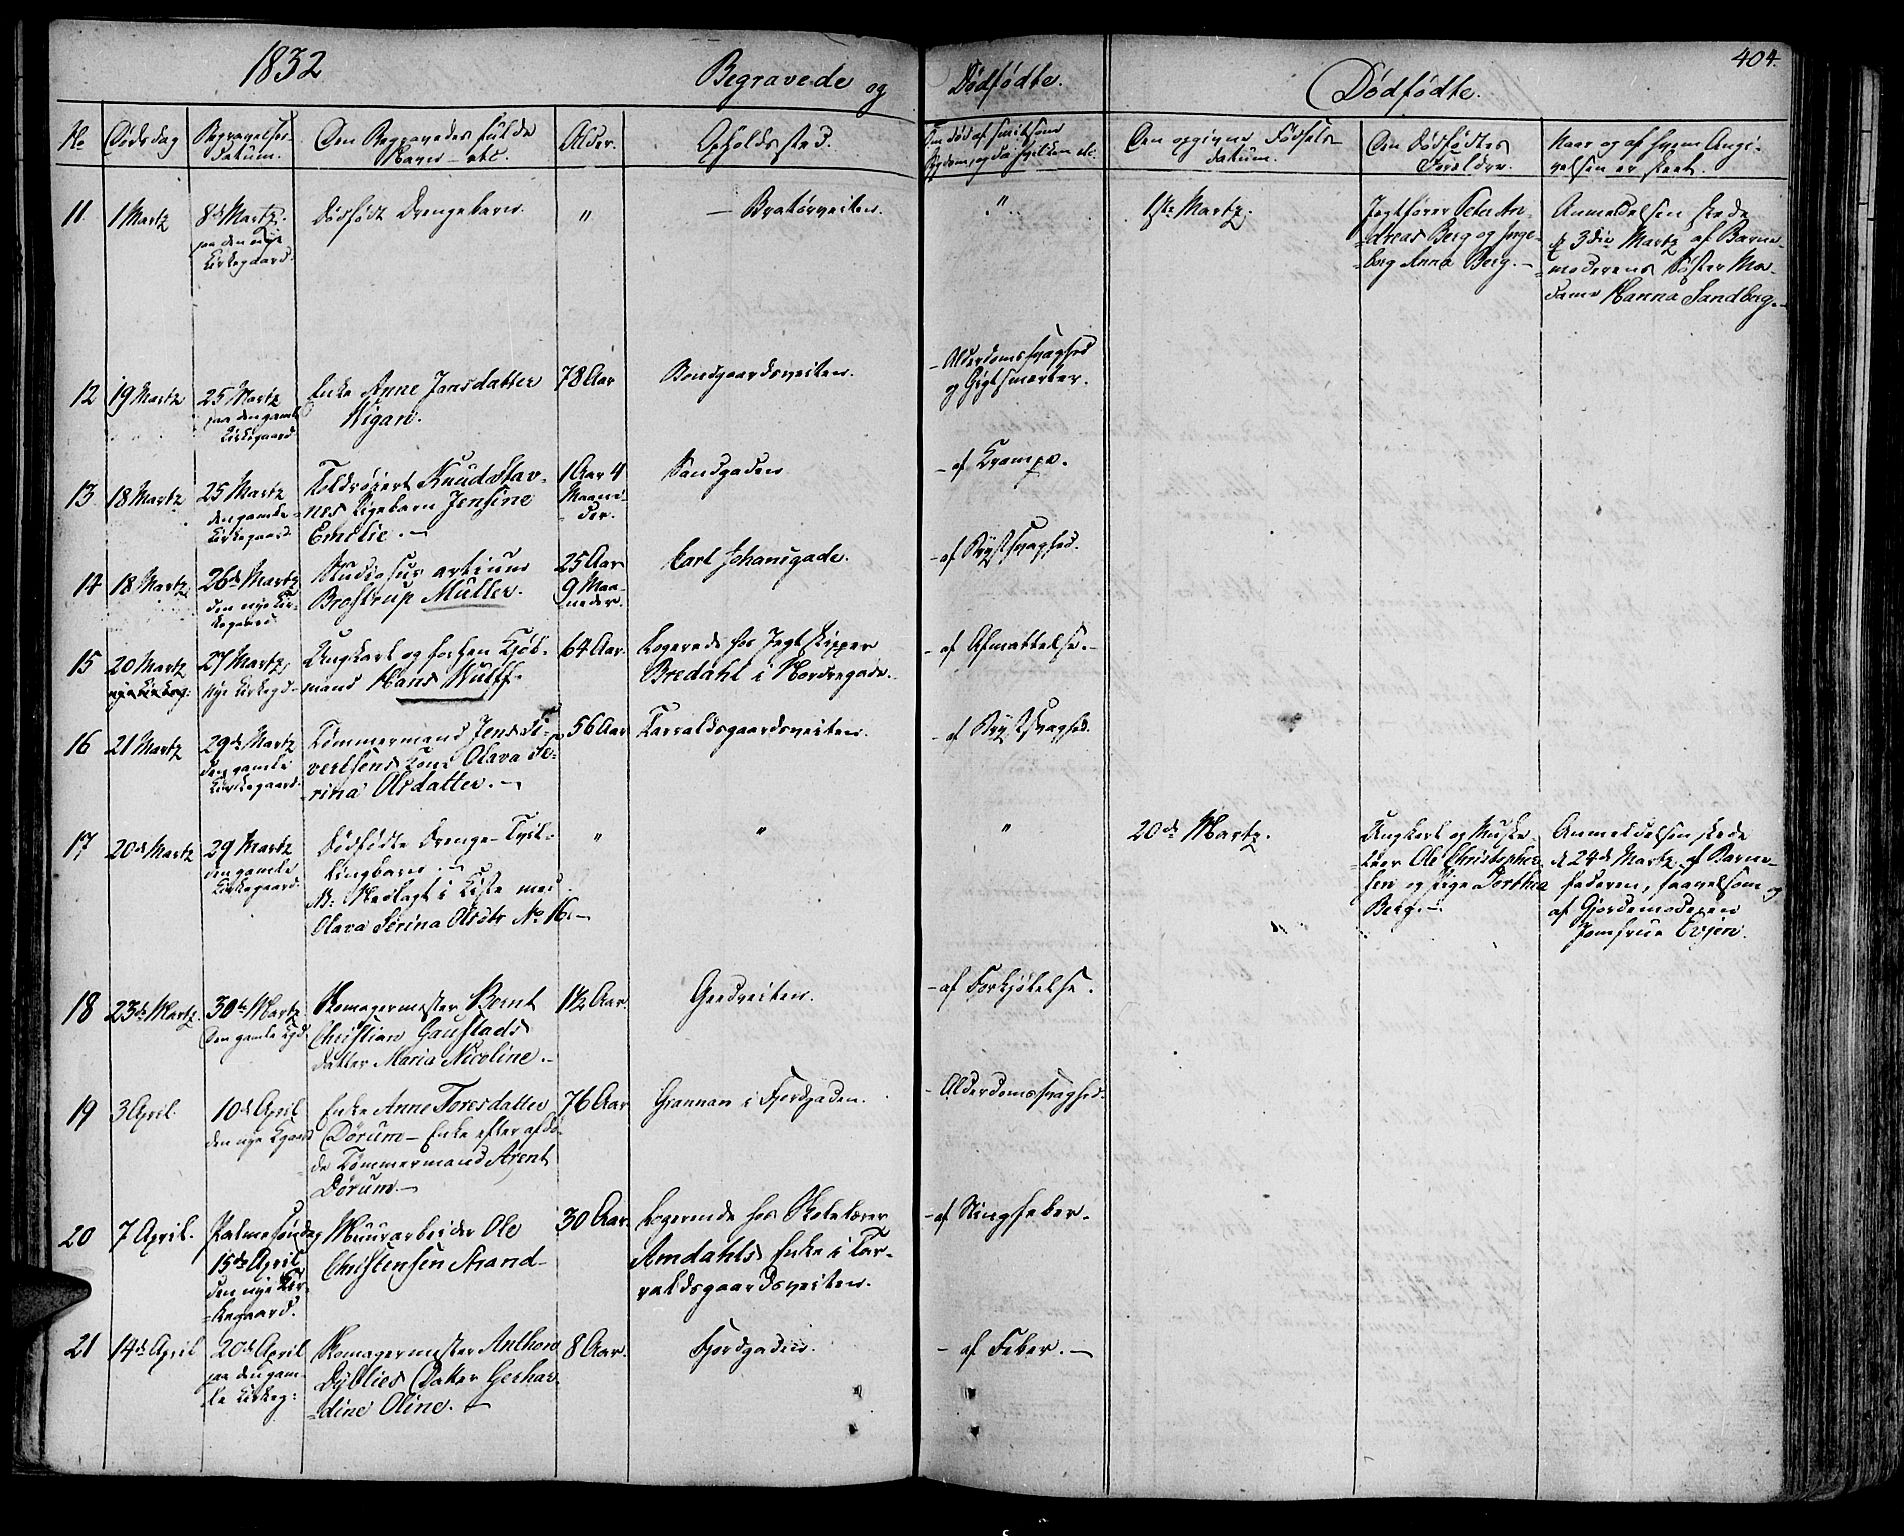 1832
Begravede og
Dødfødte.
Dødfødte.
404.
No
Dødsdag
Begravelses
Datum.
Den Begravedes fulde
Navn etc.
Alder.
Opholdssted.
Om død af smitsom
Sygdom, og da hvilken etc.
Den opgivne Fødsels-
datum.
Den Dødfødtes
Forældre.
Naar og af hvem Angi-
velsen er skeet.
11. 1 Martz
8de Martz.
paa den nye
Kirkegaard.
Dødfødt Drengebarn.
"
- Bratørveiten.
"
1ste Martz.
Jegtfører Peter An-
dreas Berg og Inge-
borg Anna Berg. -
Anmeldelsen skede
d 3die Martz af Barne-
moderens Søster Ma-
dame Hanna Sandberg. -
12 19 Martz
25 Martz
paa den gamle
Kirkegaard.
Enke Anne Jonsdatter
Wigan.
78 Aar
Bondgaardsveiten.
- Alderdomssvaghed
og Gigtsmerter.
13 18 Martz
25 Martz
den gamle
Kirkegaard
Toldrorert Knud Stav-
nes Pigebarn Jensine
Emilie. -
1 Aar 4
Maane-
der.
Sandgaden
- af Krampe.
14 18 Martz
26de Martz
den nye Kir-
kegaard
Studiosus artium
Brostrup Müller.
25 Aar
9 Maa-
neder.
Carl Johansgade.
- af Brystsvaghed.
15 20 Martz
27 Martz,
nye Kirkegd.
Ungkarl og forhen Kjøb-
mand Hans Wulff.
64 Aar.
Logerede hos Jegtskipper
Bredahl i Nordregade.
- af Afmattelse. -
16 21 Martz
29de Martz
den gamle
Kirkegaard.
Tømmermand Jens Si-
vertsens Kone Olava Se-
rina Olsdatter. -
56 Aar
Tarraldsgaardsveiten.
- af Brystsvaghed.
17 20de Martz
29 Martz
den gamle
Kirkegaard.
Dødfødte Drenge-Tvil-
lingbarn. -
NB. Nedlagt i Kiste med
Olava Serina Olsdtr No 16. -
"
"
"
20de Martz.
Ungkarl og Muske-
teer Ole Christopher-
sen og Pige Dorthea
Berg. -
Anmeldelsen skede
d 24de Martz af Barne-
faderen, saavelsom og
af Gjordemoderen
Jomfrue Evjen.
18 23de Martz.
30te Martz
Den gamle Kgd.
Skomagermester Bernt
Christian Gaustads
datter Maria Nicoline. -
1½ Aar.
Gredveiten.
- af Forkjølelse.
19 3 April.
10de April
den nye Kgaard
Enke Anne Toresdatter
Dørum - Enke efter afdø-
de Tømmermand Arent
Dørum -
76 Aar
Grannan i Fjordgaden.
- Alderdomssvaghed.
20 7 April.
Palmesøndag
15de April
den nye Kir-
kegaard.
Muurarbeider Ole
Christensen Strand -
30 Aar.
Logerende hos Skolelærer
Amdahls Enke i Tar-
raldsgaardsveiten.
- af Stingfeber.
21 14de April
20de April
paa den gam-
le Kirkeg:
Skomagermester Anthon
Dyblies Datter Gerhar-
dine Oline. -
8 Aar.
Fjordgaden.
- af Feber. -